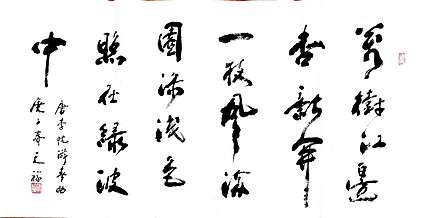 萬樹江邊
杏新開
一夜風滿
園深淺色
照在綠波
中
唐李 游春曲
庚子春